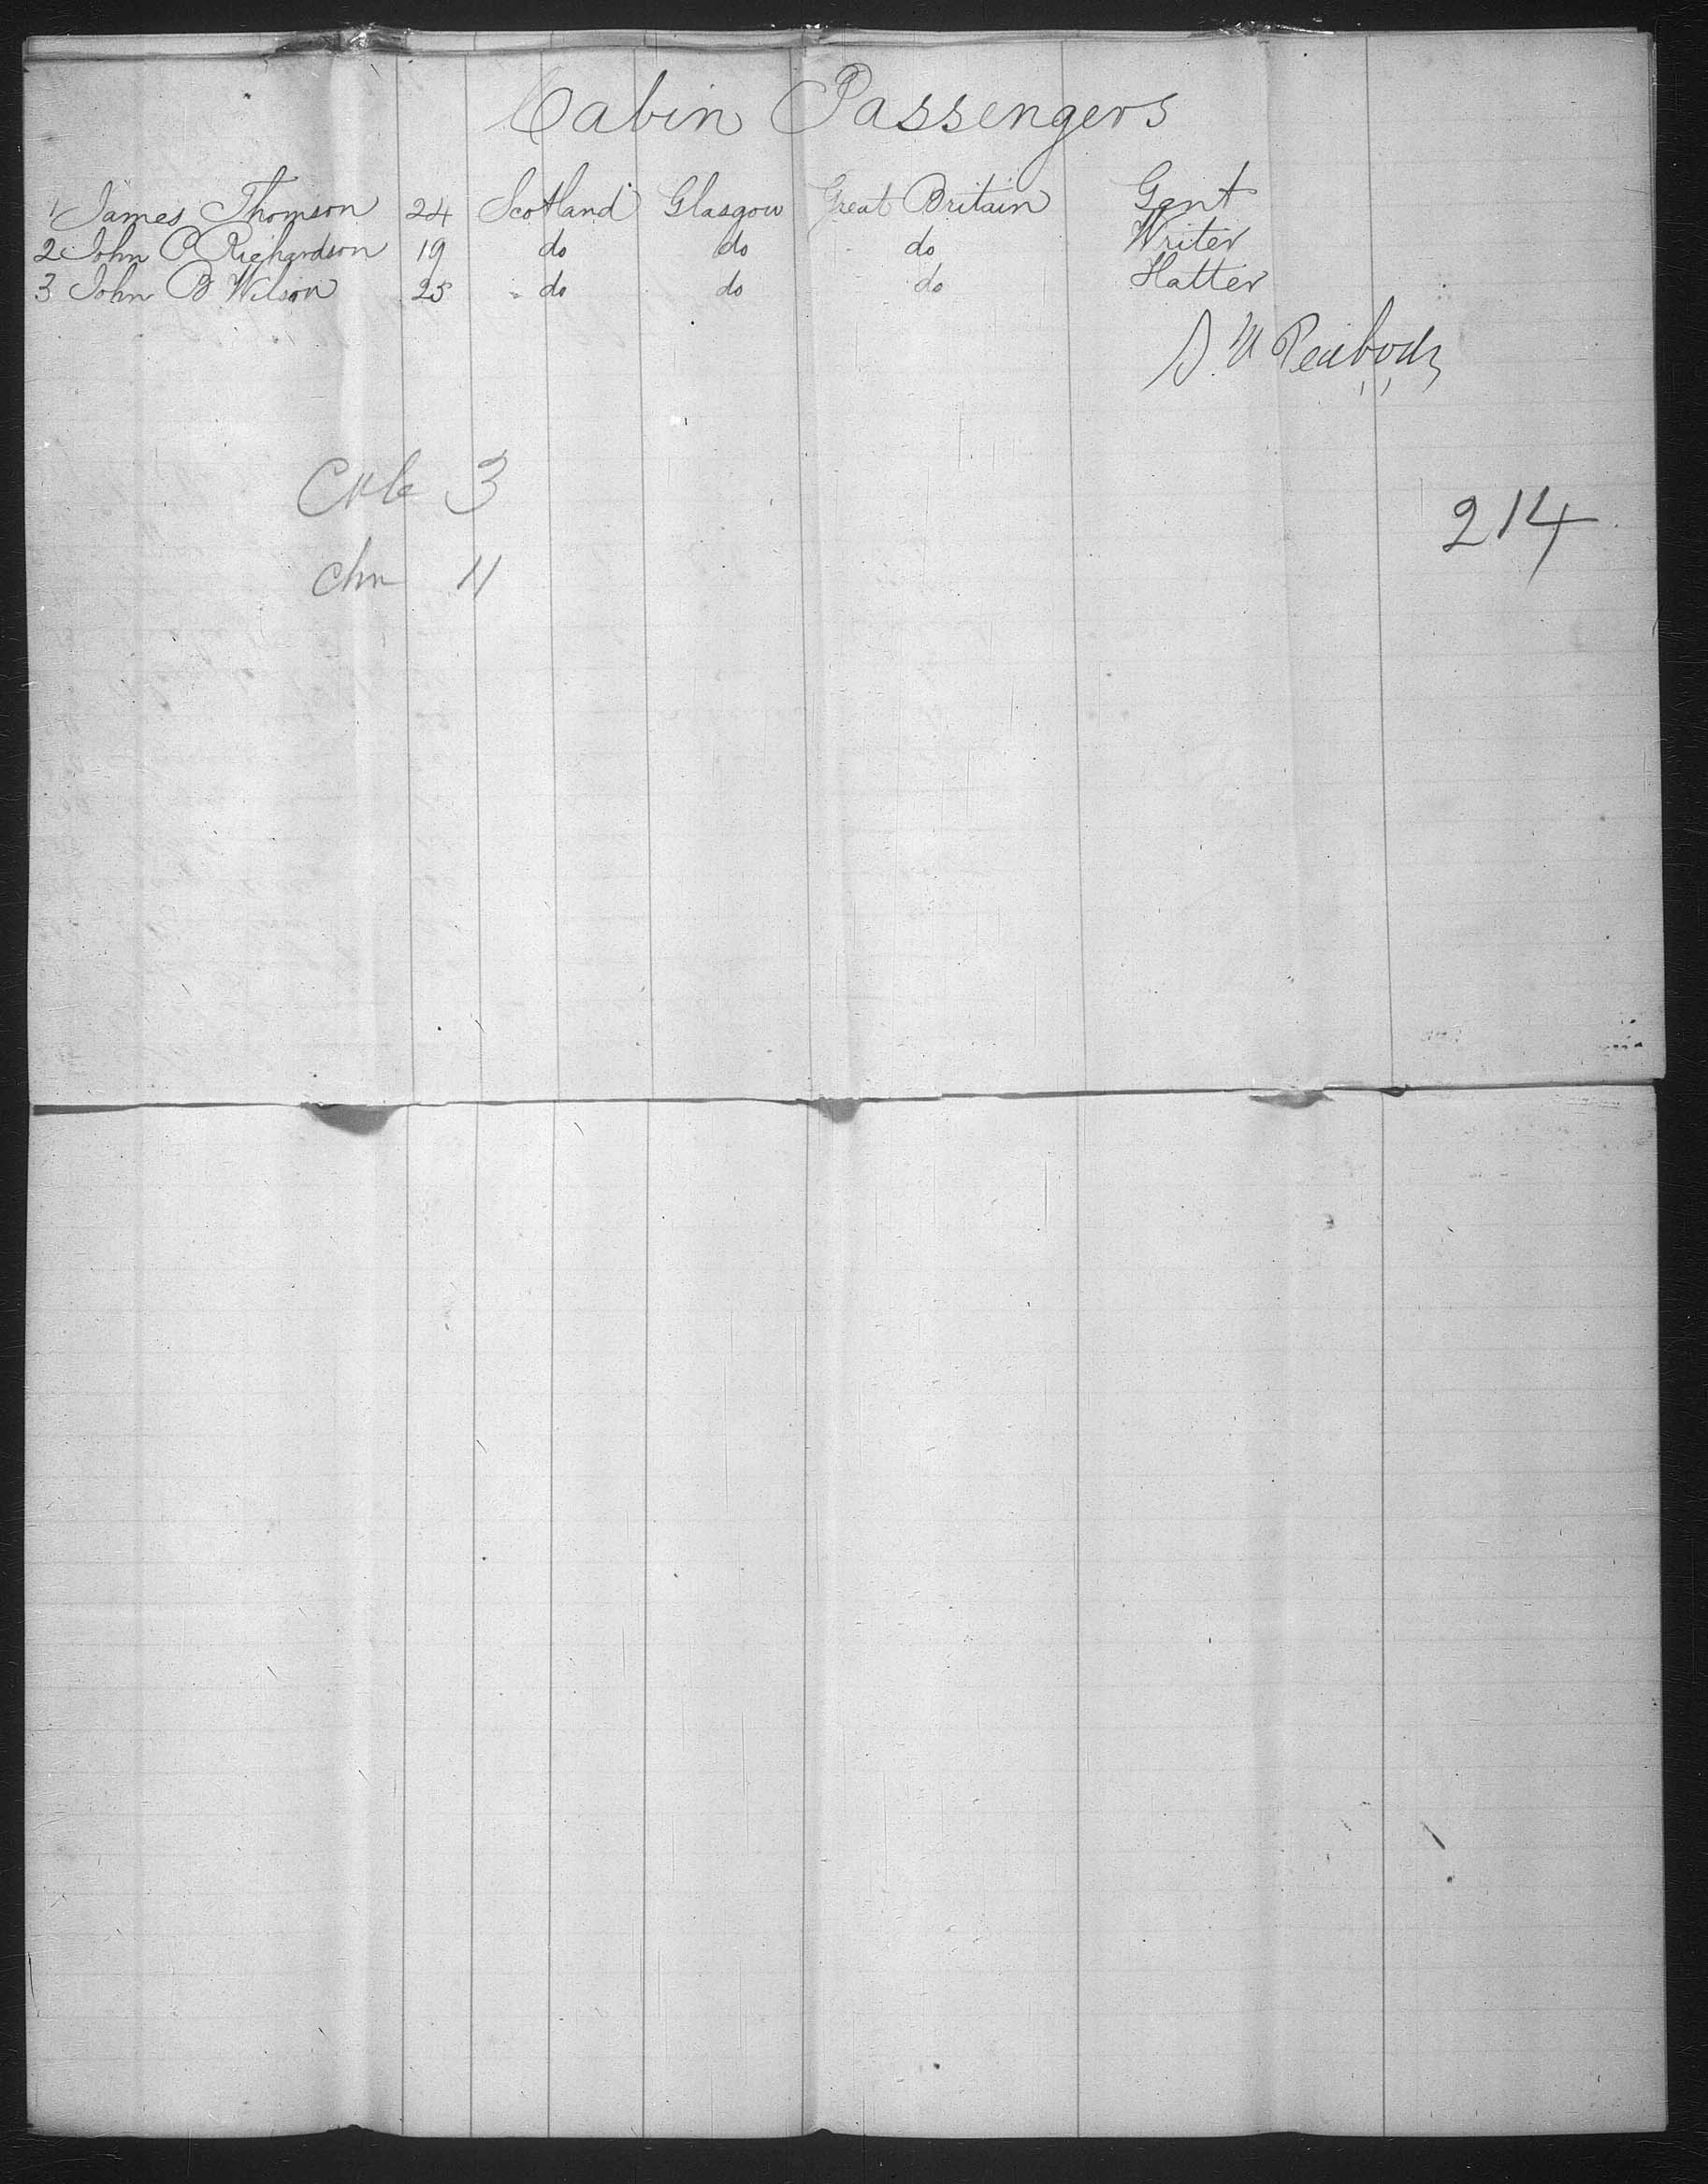 Cabin Passengers
1 James Thomson 24 Scotland Glasgow Great Britain Gent
2 John C Richardson 19 do do do Writer
3 John B Wilson 25 do do do Hatter
Peabody
3
214
chn 11